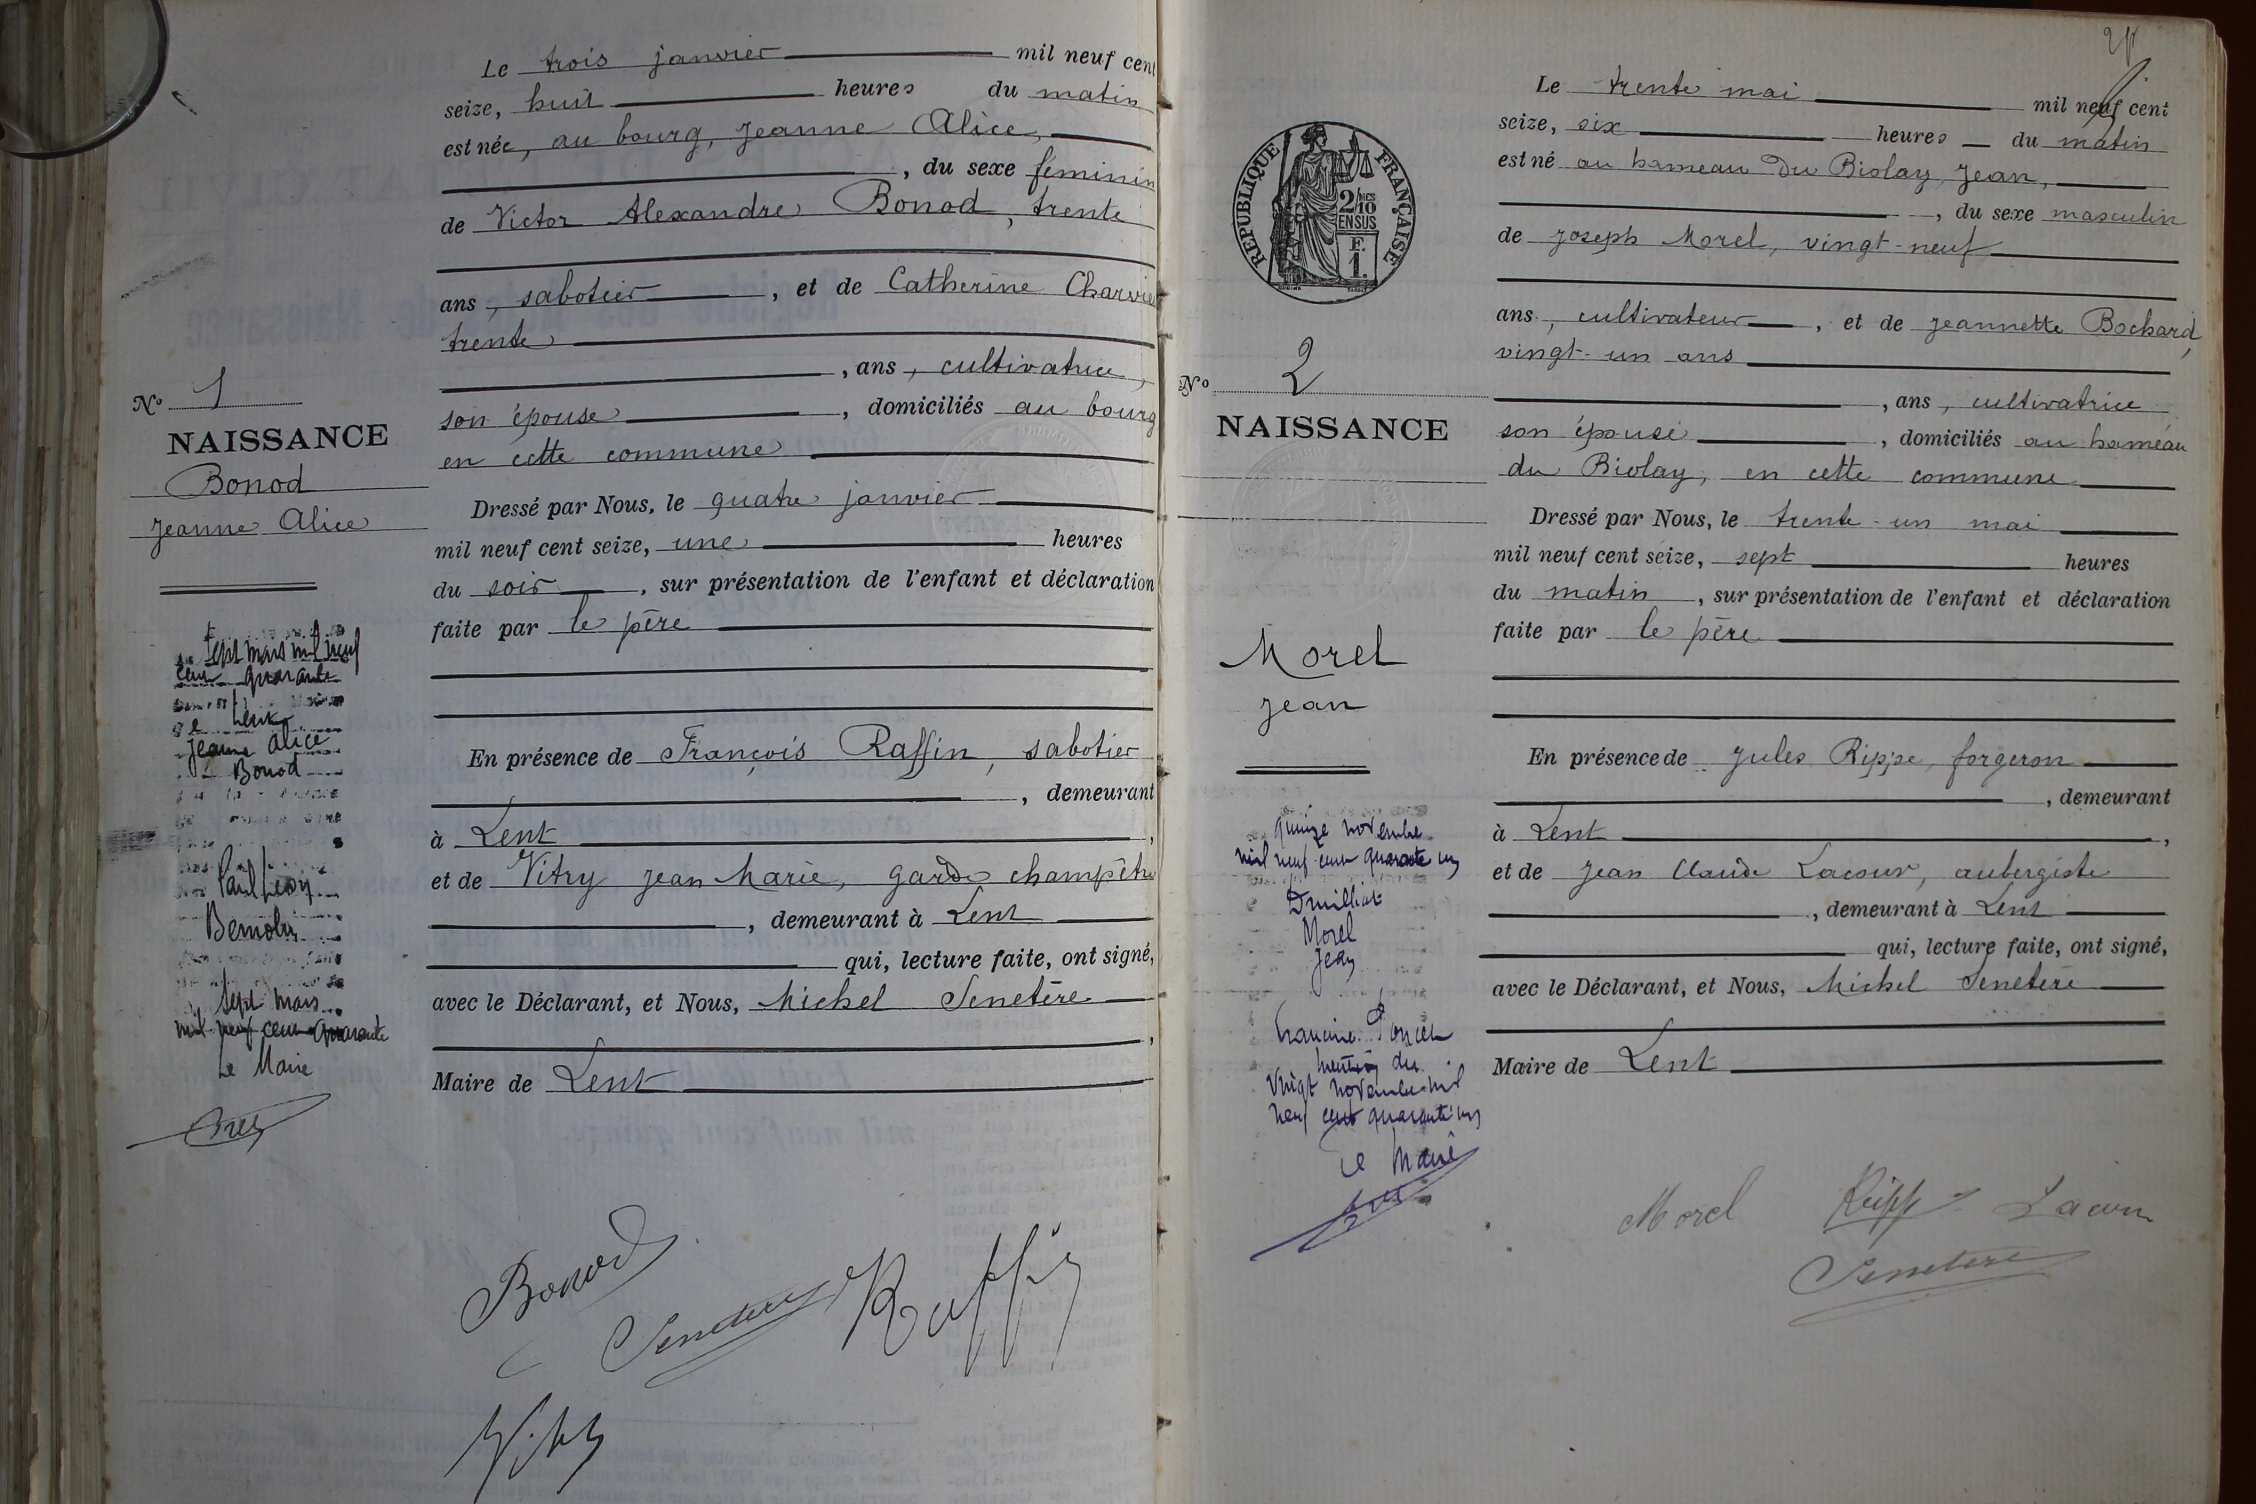 Le trois janvier mil neuf cent
seize, huit heures du matin
est née, au bourg, Jeanne Alice,
, du sexe féminin
de Victor Alexandre Bonod, trente
ans, sabotier, et de Catherine
trente
, ans, cultivatrice,
son épouse, domiciliés au bourg
en cette commune
Dressé par Nous, le quatre janvier
mil neuf cent seize, une heures
du soir, sur présentation de l'enfant et déclaration
faite par le père
En présence de François Raffin, sabotier
, demeurant
à Lent,
et de Vitry Jean Marie, garde champêtre
, demeurant à Lent
qui, lecture faite, ont signé,
avec le Déclarant, et Nous, Michel Senetère
,
Maire de Lent
No 1
NAISSANCE
Bonod
Jeanne Alice
sept mars mil neuf
cent quarante
Jeanne Alice
Bonod
Paul
sept mars
mil neuf cent quarante
Le Maire
Bonod
Senetère
Raffin
Vitry
Le trente mai mil neuf cent
seize, six heures du matin
est né au hameau du Biolay, Jean,
, du sexe masculin
de Joseph Morel, vingt-neuf
ans, cultivateur, et de Jeannette Bochard,
vingt-un ans
, ans, cultivatrice
son épouse, domiciliés au hameau
du Biolay, en cette commune
Dressé par Nous, le trente-un mai
mil neuf cent seize, sept heures
du matin, sur présentation de l'enfant et déclaration
faite par le père
En présence de Jules Rippe, forgeron
, demeurant
à Lent,
et de Jean Claude Lacour, aubergiste
, demeurant à Lent
qui, lecture faite, ont signé,
avec le Déclarant, et Nous, Michel Senetère
Maire de Lent
RÉPUBLIQUE FRANÇAISE
2/10
EN SUS
F.
1.
No 2
NAISSANCE
Morel
Jean
quinze novembre
mil neuf cent quarante un
Druillat
Morel
Jean
Francine Poncet
mention du
vingt novembre mil
neuf cent quarante un
Le Maire
Morel
Ripp
Lacour
Senetère